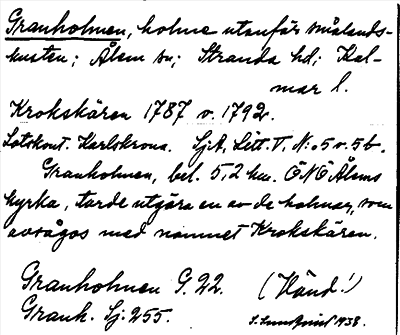 Granholmen, holme utanför smålands-
kusten; Ålem sn; Stranda hd; Kal-
mar l.
Krokskären 1787 o. 1792.
Lotskont. Karlskrona. Sj.A, Litt. T, N:o 5 o. 5b.
Granholmen, bel. 5,2 km. ÖNÖ Ålems
kyrka, torde utgöra en av de holmar, som
avsågos med namnet Krokskären.
Granholmen G. 22. (Händ!)
Grank. Sj. 255. S. Lundquist 1938.